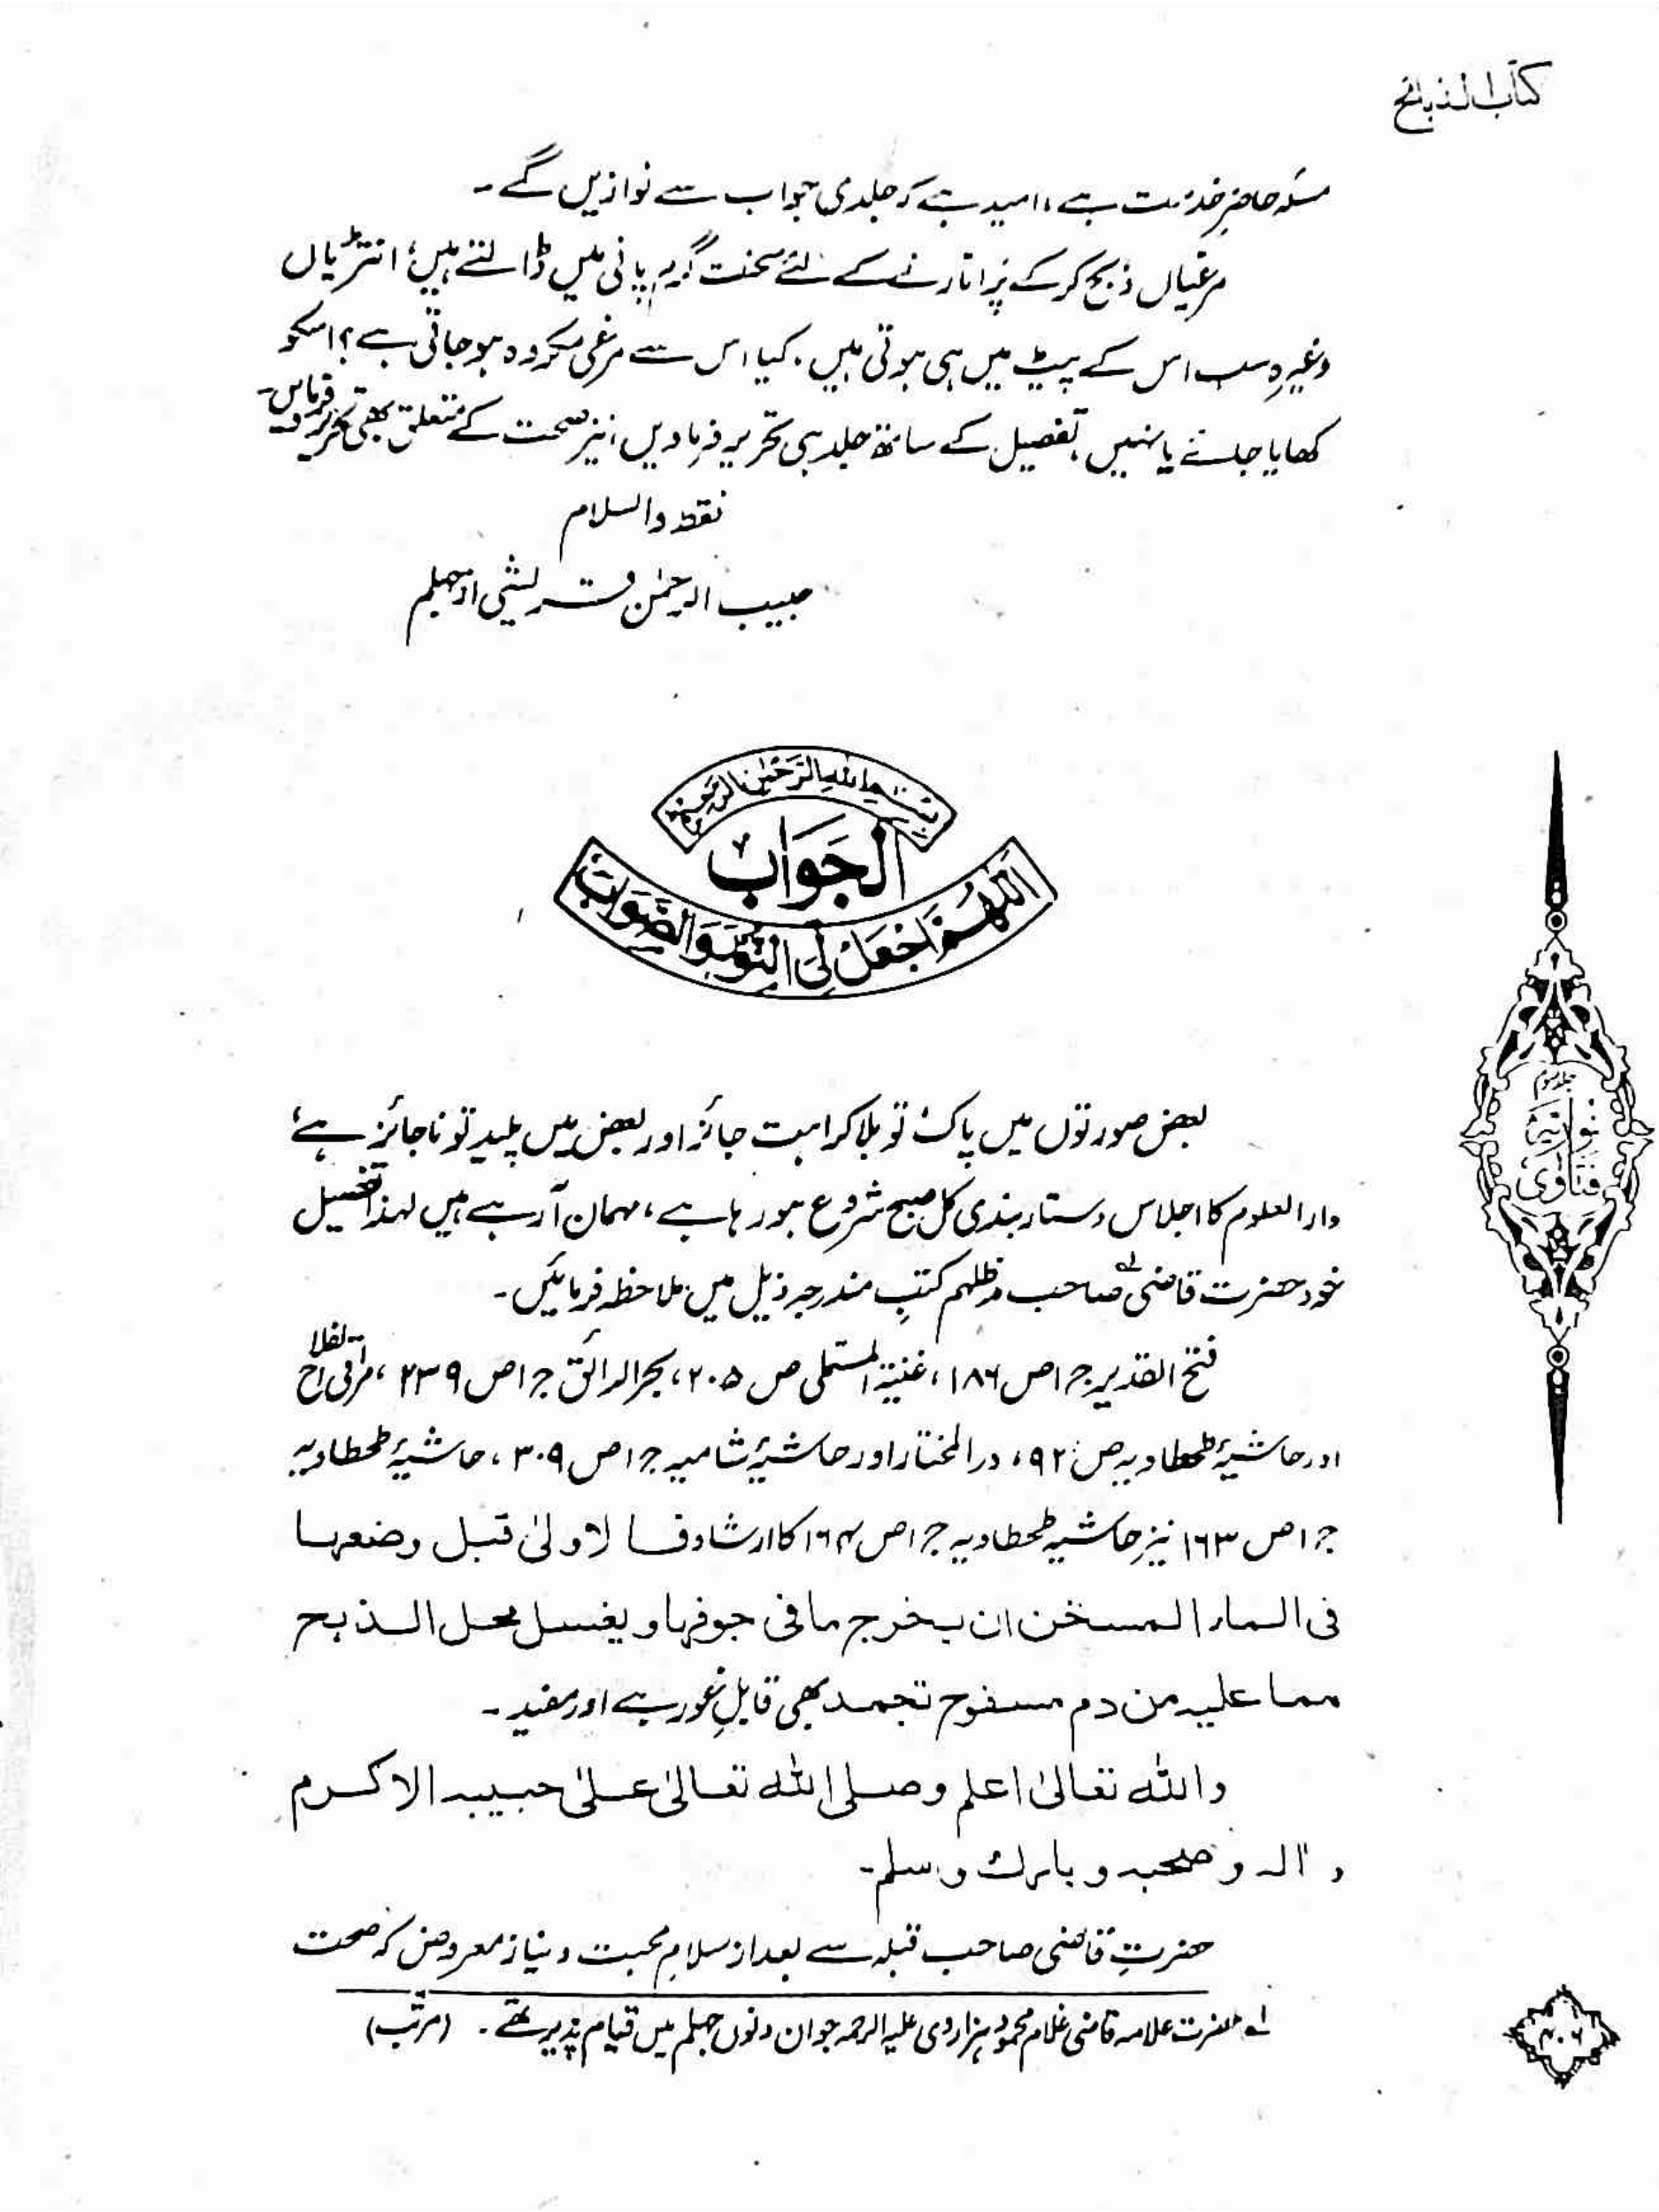 کتاب الذبائح
مسئلہ حاضرِ خدمت ہے، امید ہے کہ جلدی جواب سے نوازیں گے۔
مرغیاں ذبح کر کے پَر اتارنے کے لئے سخت گرم پانی میں ڈالتے ہیں؛ انتڑیاں
وغیرہ سب اس کے پیٹ میں ہی ہوتی ہیں. کیا اس سے مرغی مکروہ ہو جاتی ہے؟ اسکو
کھایا جائے یا نہیں، تفصیل کے ساتھ جلد ہی تحریر فرما دیں، نیز صحت کے متعلق بھی تحریر فرمائیں۔
فقط والسلام
حبیب الرحمٰن قریشی از جہلم
بسم الله الرحمٰن الرحیم
الجَوَابُ
اللّٰهُمَّ اجْعَلْ لِیَ النُّوْرَ وَالصَّوَابَ
بعض صورتوں میں پاک تو بلا کراہت جائز اور بعض میں پلید تو ناجائز ہے؛
دار العلوم کا اجلاس دستار بندی کل صبح شروع ہو رہا ہے، مہمان آ رہے ہیں لہذا تفصیل
خود حضرت قاضی لہ صاحب مدظلہم کتبِ مندرجہ ذیل میں ملاحظہ فرمائیں۔
فتح القدیر ج ۱ ص ۱۸۶، غنیۃ المستملی ص ۲۰۵، بحر الرائق ج ۱ ص ۲۳۹، مراقی الفلاح
اور حاشیۂ طحطاویہ ص ۹۲، در المختار اور حاشیۂ شامیہ ج ۱ ص ۳۰۹، حاشیۂ طحطاویہ
ج ۱ ص ۱۶۳ نیز حاشیہ طحطاویہ ج ۱ ص ۱۶۴ کا ارشاد فالاولیٰ قبل وضعها
فی الماء المسخن ان یخرج ما فی جوفها و یغسل محل الذبح
مما علیه من دم مسفوح تجمد بھی قابلِ غور ہے اور مفید۔
والله تعالیٰ اعلم وصلی الله تعالیٰ علیٰ حبیبه الاکرم
و اٰله وصحبه وبارك وسلم۔
حضرتِ قاضی صاحب قبلہ سے بعد از سلامِ محبت و نیاز معروض کہ صحت
لہ حضرت علامہ قاضی غلام محمود ہزاروی علیہ الرحمہ جو ان دنوں جہلم میں قیام پذیر تھے۔ (مرتب)
جلد سوم
نوریہ
فتاویٰ
۴۰۶